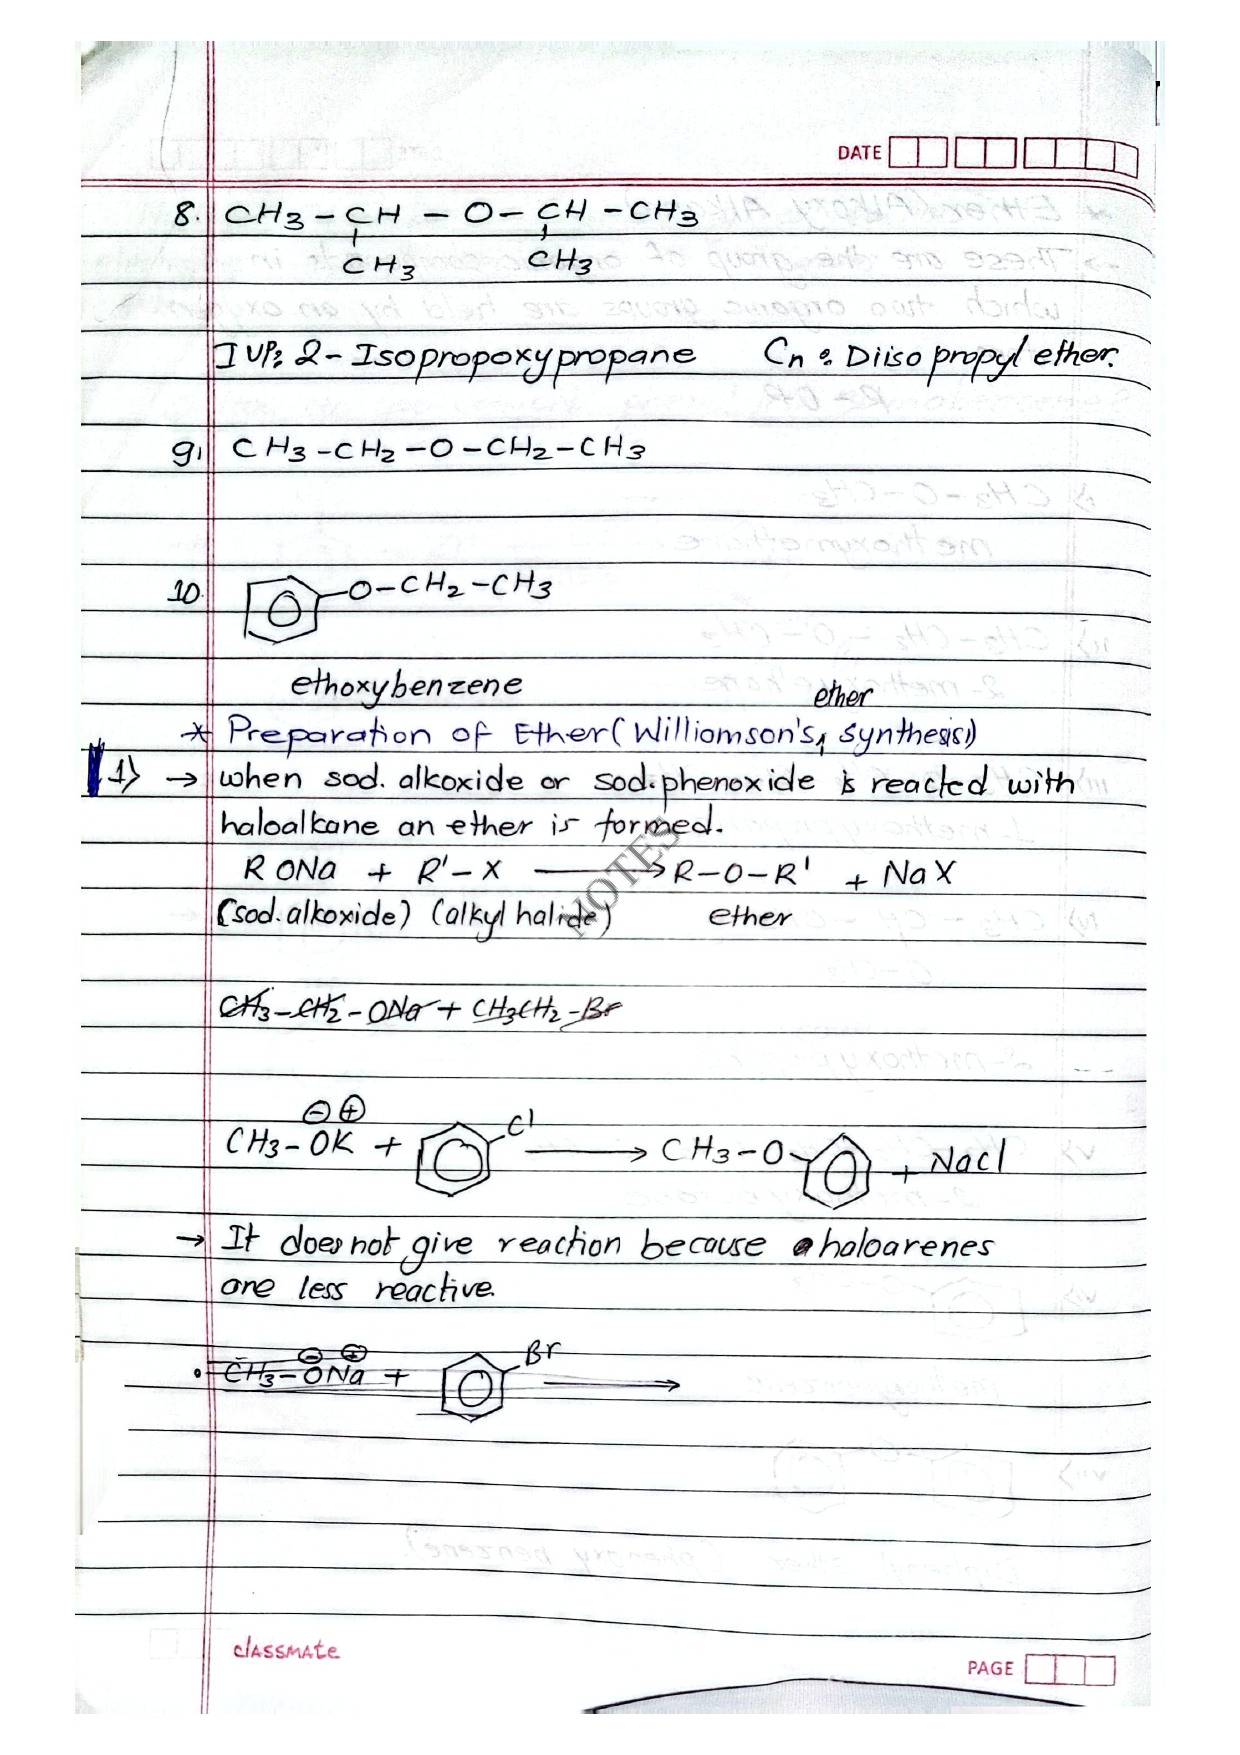 DATE
8. CH3 - CH - O - CH - CH3
CH3 CH3
IUP: 2- Isopropoxypropane Cn : Diisopropyl ether.
9. CH3 - CH2 - O - CH2 - CH3
10. O - CH2 - CH3
ethoxybenzene
ether
* Preparation of Ether (Williomson's, synthesis)
1) → when sod. alkoxide or sod. phenoxide is reacted with
haloalkane an ether is formed.
R ONa + R' - X → R - O - R' + NaX
(sod. alkoxide) (alkyl halide) ether
NOTES
CH3 - CH2 - ONa + CH3CH2 - Br
⊖ ⊕
CH3 - OK + Cl → CH3 - O + Nacl
→ It does not give reaction because haloarenes
are less reactive.
⊖ ⊕
• CH3 - ONa + Br →
classmate
PAGE